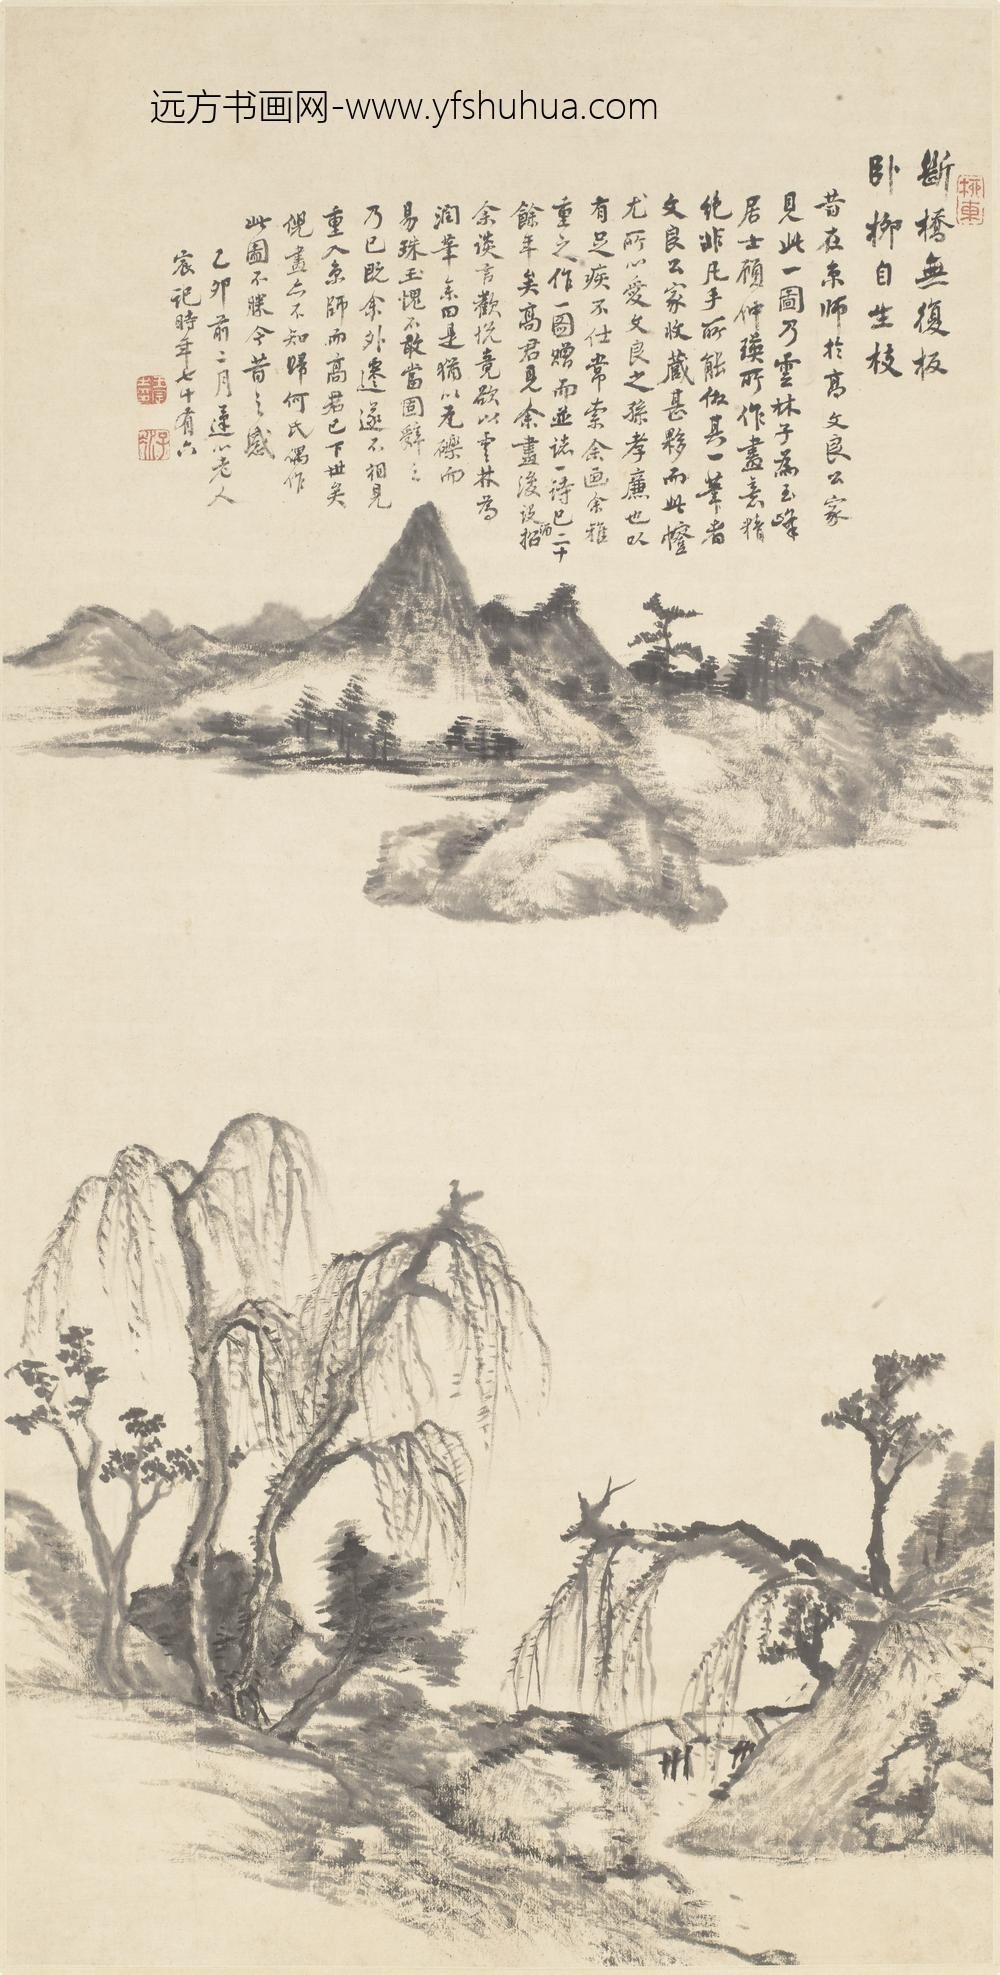 远方书画网-www.yfshuhua.com
斷橋無復板
卧柳自生枝
昔在京師於高文良公家
見此一圖乃雲林子為玉峰
居士顧仲瑛所作畫意精
絶非凡手所能仿其一筆者
文良公家收藏甚夥而此幢
尤所心愛文良之孫孝廉也以
有足疾不仕常索余画余雅
重之作一圖贈而並誌一詩已二十
餘年矣高君見余畫後設招
酒
余談言歡悦竟欲以雲林為
潤筆余曰是猶以瓦礫而
易珠玉愧不敢當固辭之
乃已既余外遷遂不相見
重入京師而高君已下世矣
倪畫亦不知歸何氏偶作
此圖不勝今昔之感
乙卯前二月蓬心老人
宸記時年七十有六
柳東
王宸